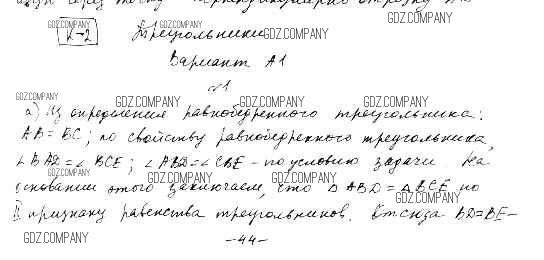 GDZ.COMPANY
GDZ.COMPANY GDZ.COMPANY
К-2 Треугольники GDZ.COMPANY
Вариант А1
№1
GDZ.COMPANY GDZ.COMPANY GDZ.COMPANY GDZ.COMPANY
а) Из определения равнобедренного треугольника:
AB = BC; по свойству равнобедренного треугольника,
∠BAD = ∠BCE; ∠ABD = ∠CBE - по условию задачи На
GDZ.COMPANY GDZ.COMPANY GDZ.COMPANY
основании этого заключаем, что △ABD = △BCE по
GDZ.COMPANY
II признаку равенства треугольников. Отсюда BD=BE-
GDZ.COMPANY
-44-